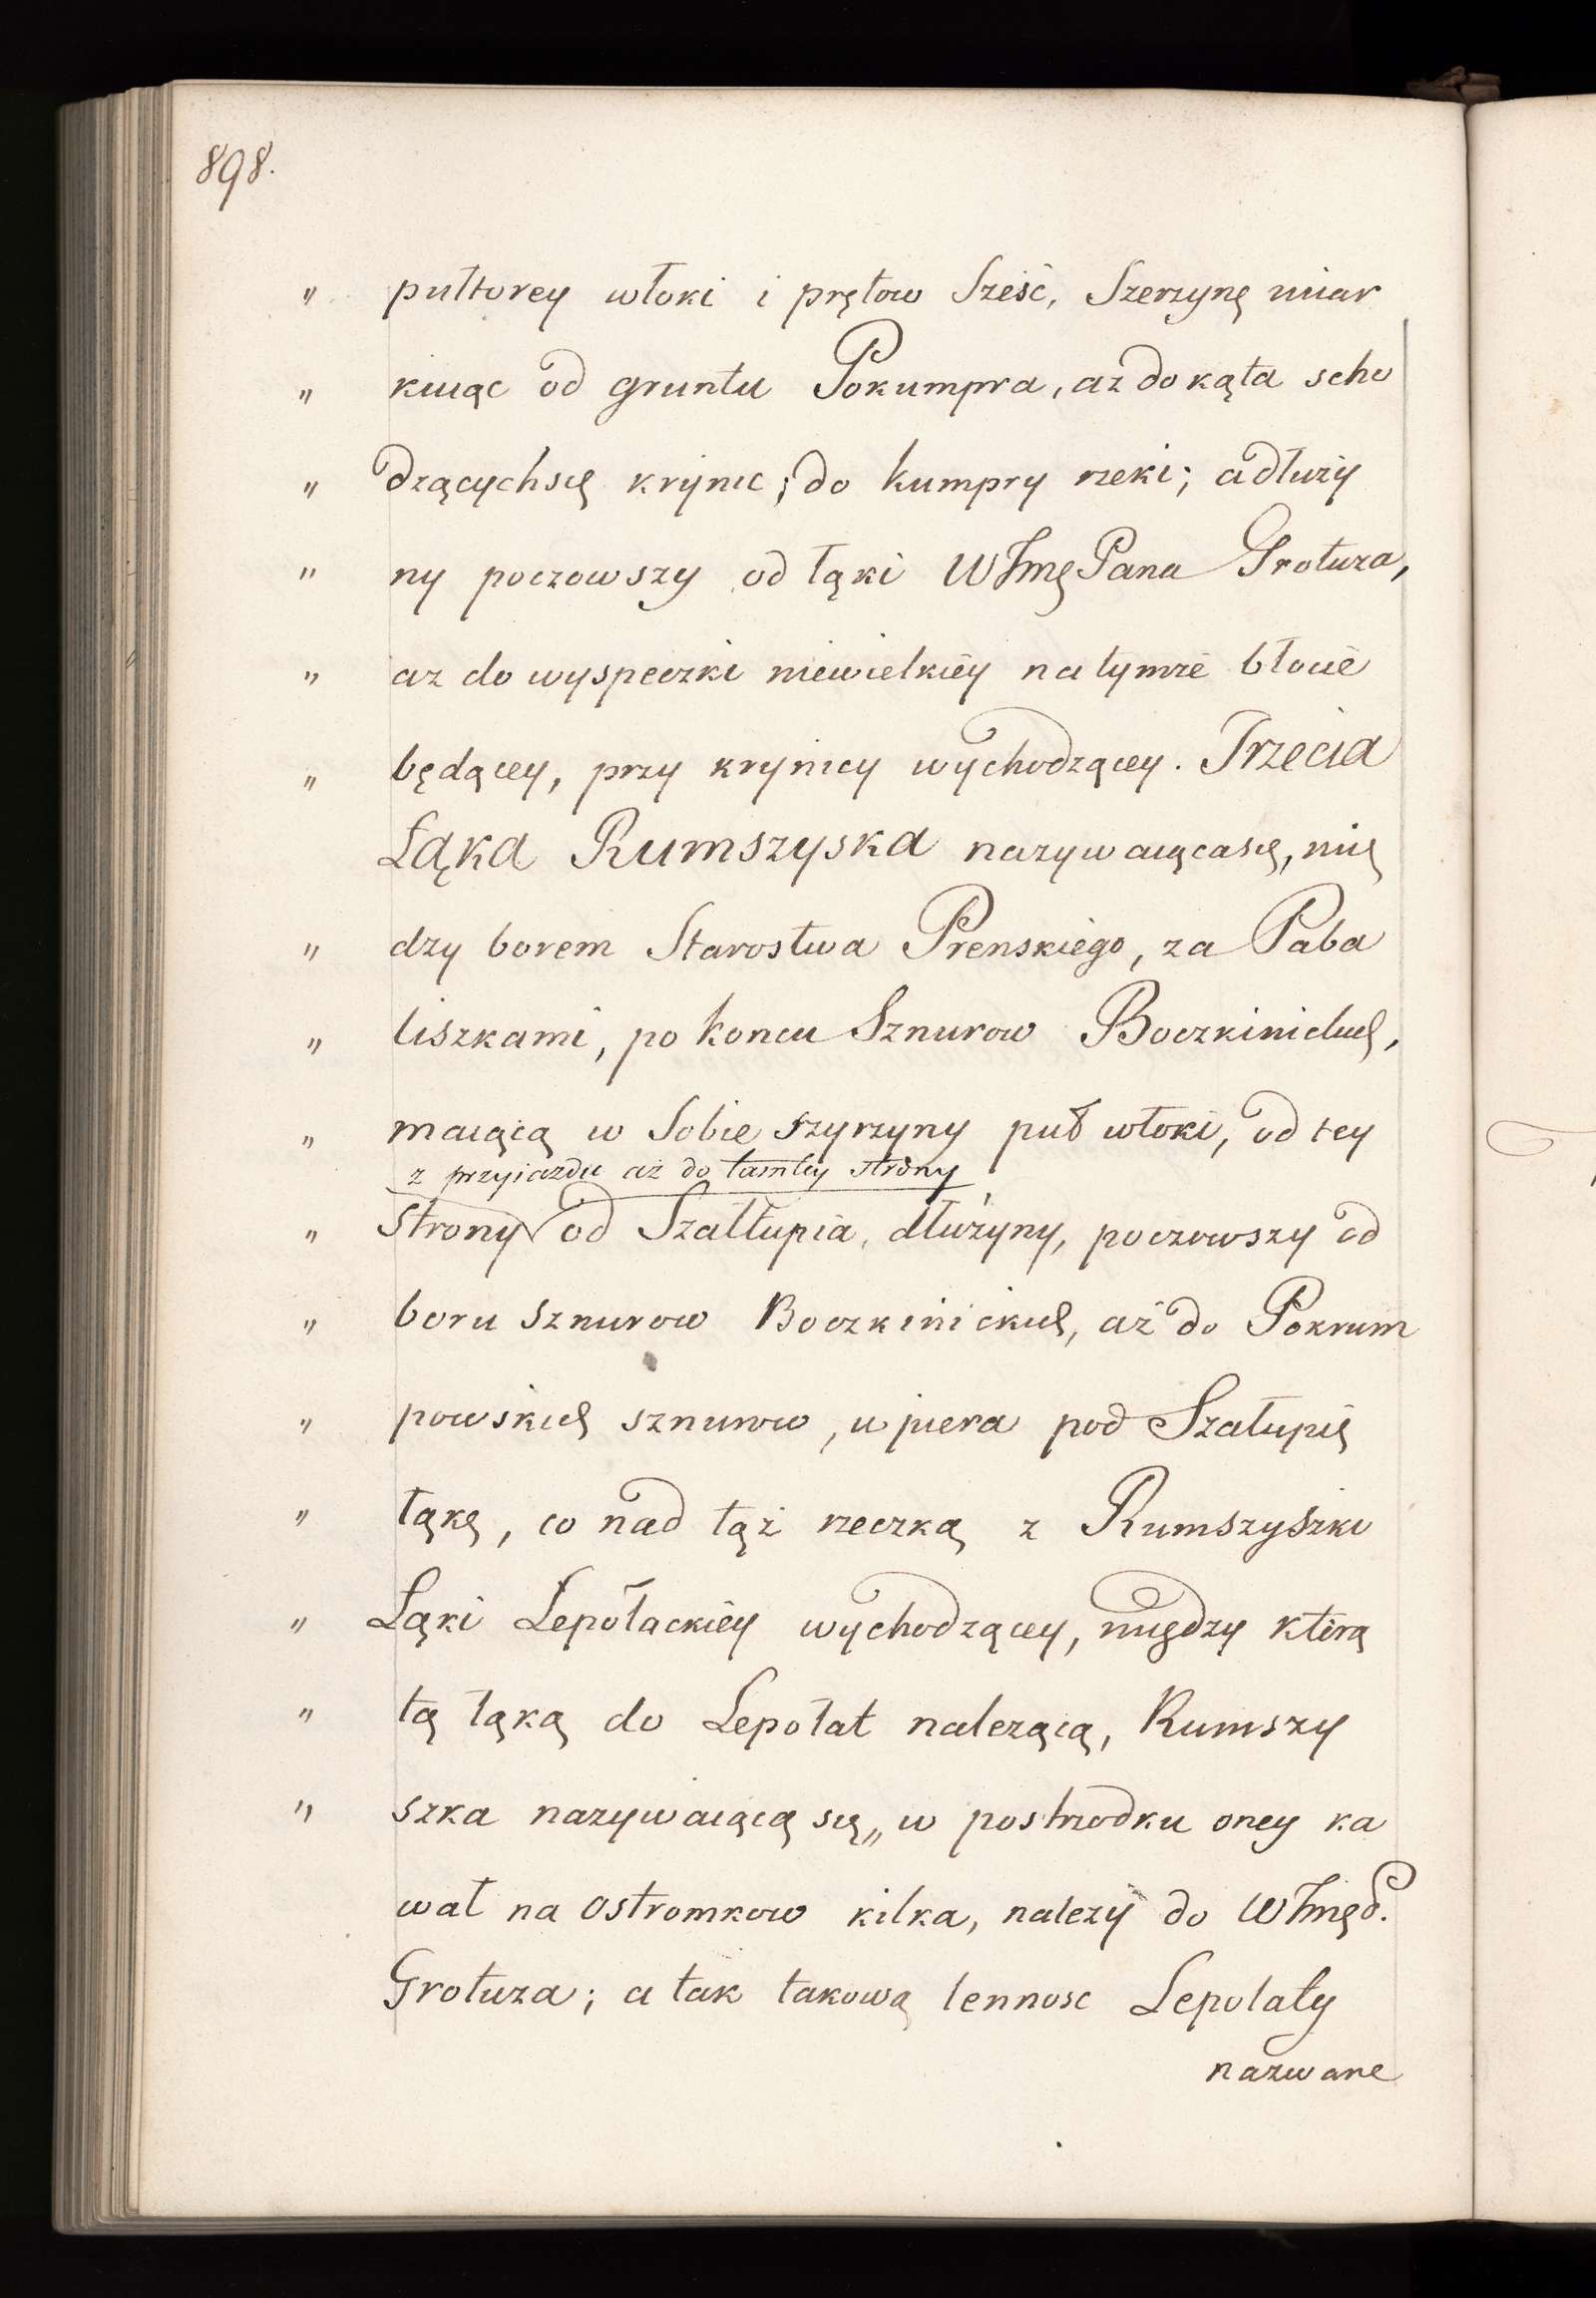 898.
" pułtorey włoki i prętow Sześć, Szerzynę miar
" kuiąc od gruntu Pokumpra, aż do kąta scho
" dzącychsię krynic; do kumpry rzeki; a dłuży
" ny poczowszy od łąki WJmę Pana Grotuza,
" az do wyspeczki niewielkiéy na tymże błocie
" będącey, przy krynicy wychodzącey. Trzecia
Łąka Rumszyska nazywaiącasię, mię
" dzy borem Starostwa Prenskiego, za Paba
" liszkami, po koncu Sznurow Boczkinickich,
" maiącą w Sobie szyrzyny puł włoki, od tey
z przyjazdu aż do tamtey strony
" strony od Szałłupia, dłużyny, poczowszy od
" boru sznurow Boczkinickich, aż do Pokrum
" powskich sznurow, upiera pod Szałupię
" łąkę, co nad tąż rzeczką z Rumszyszki
" Łąki Lepołackiéy wychodzącey, między którą
" tą łąką do Lepołat nalezącą, Rumszy
" szka nazywaiącą się,, w postrzodku oney ka
wał na ostromkow kilka, nalezy do WJmęP.
Grotuza; a tak takową lennosc Lepolaty
nazwane